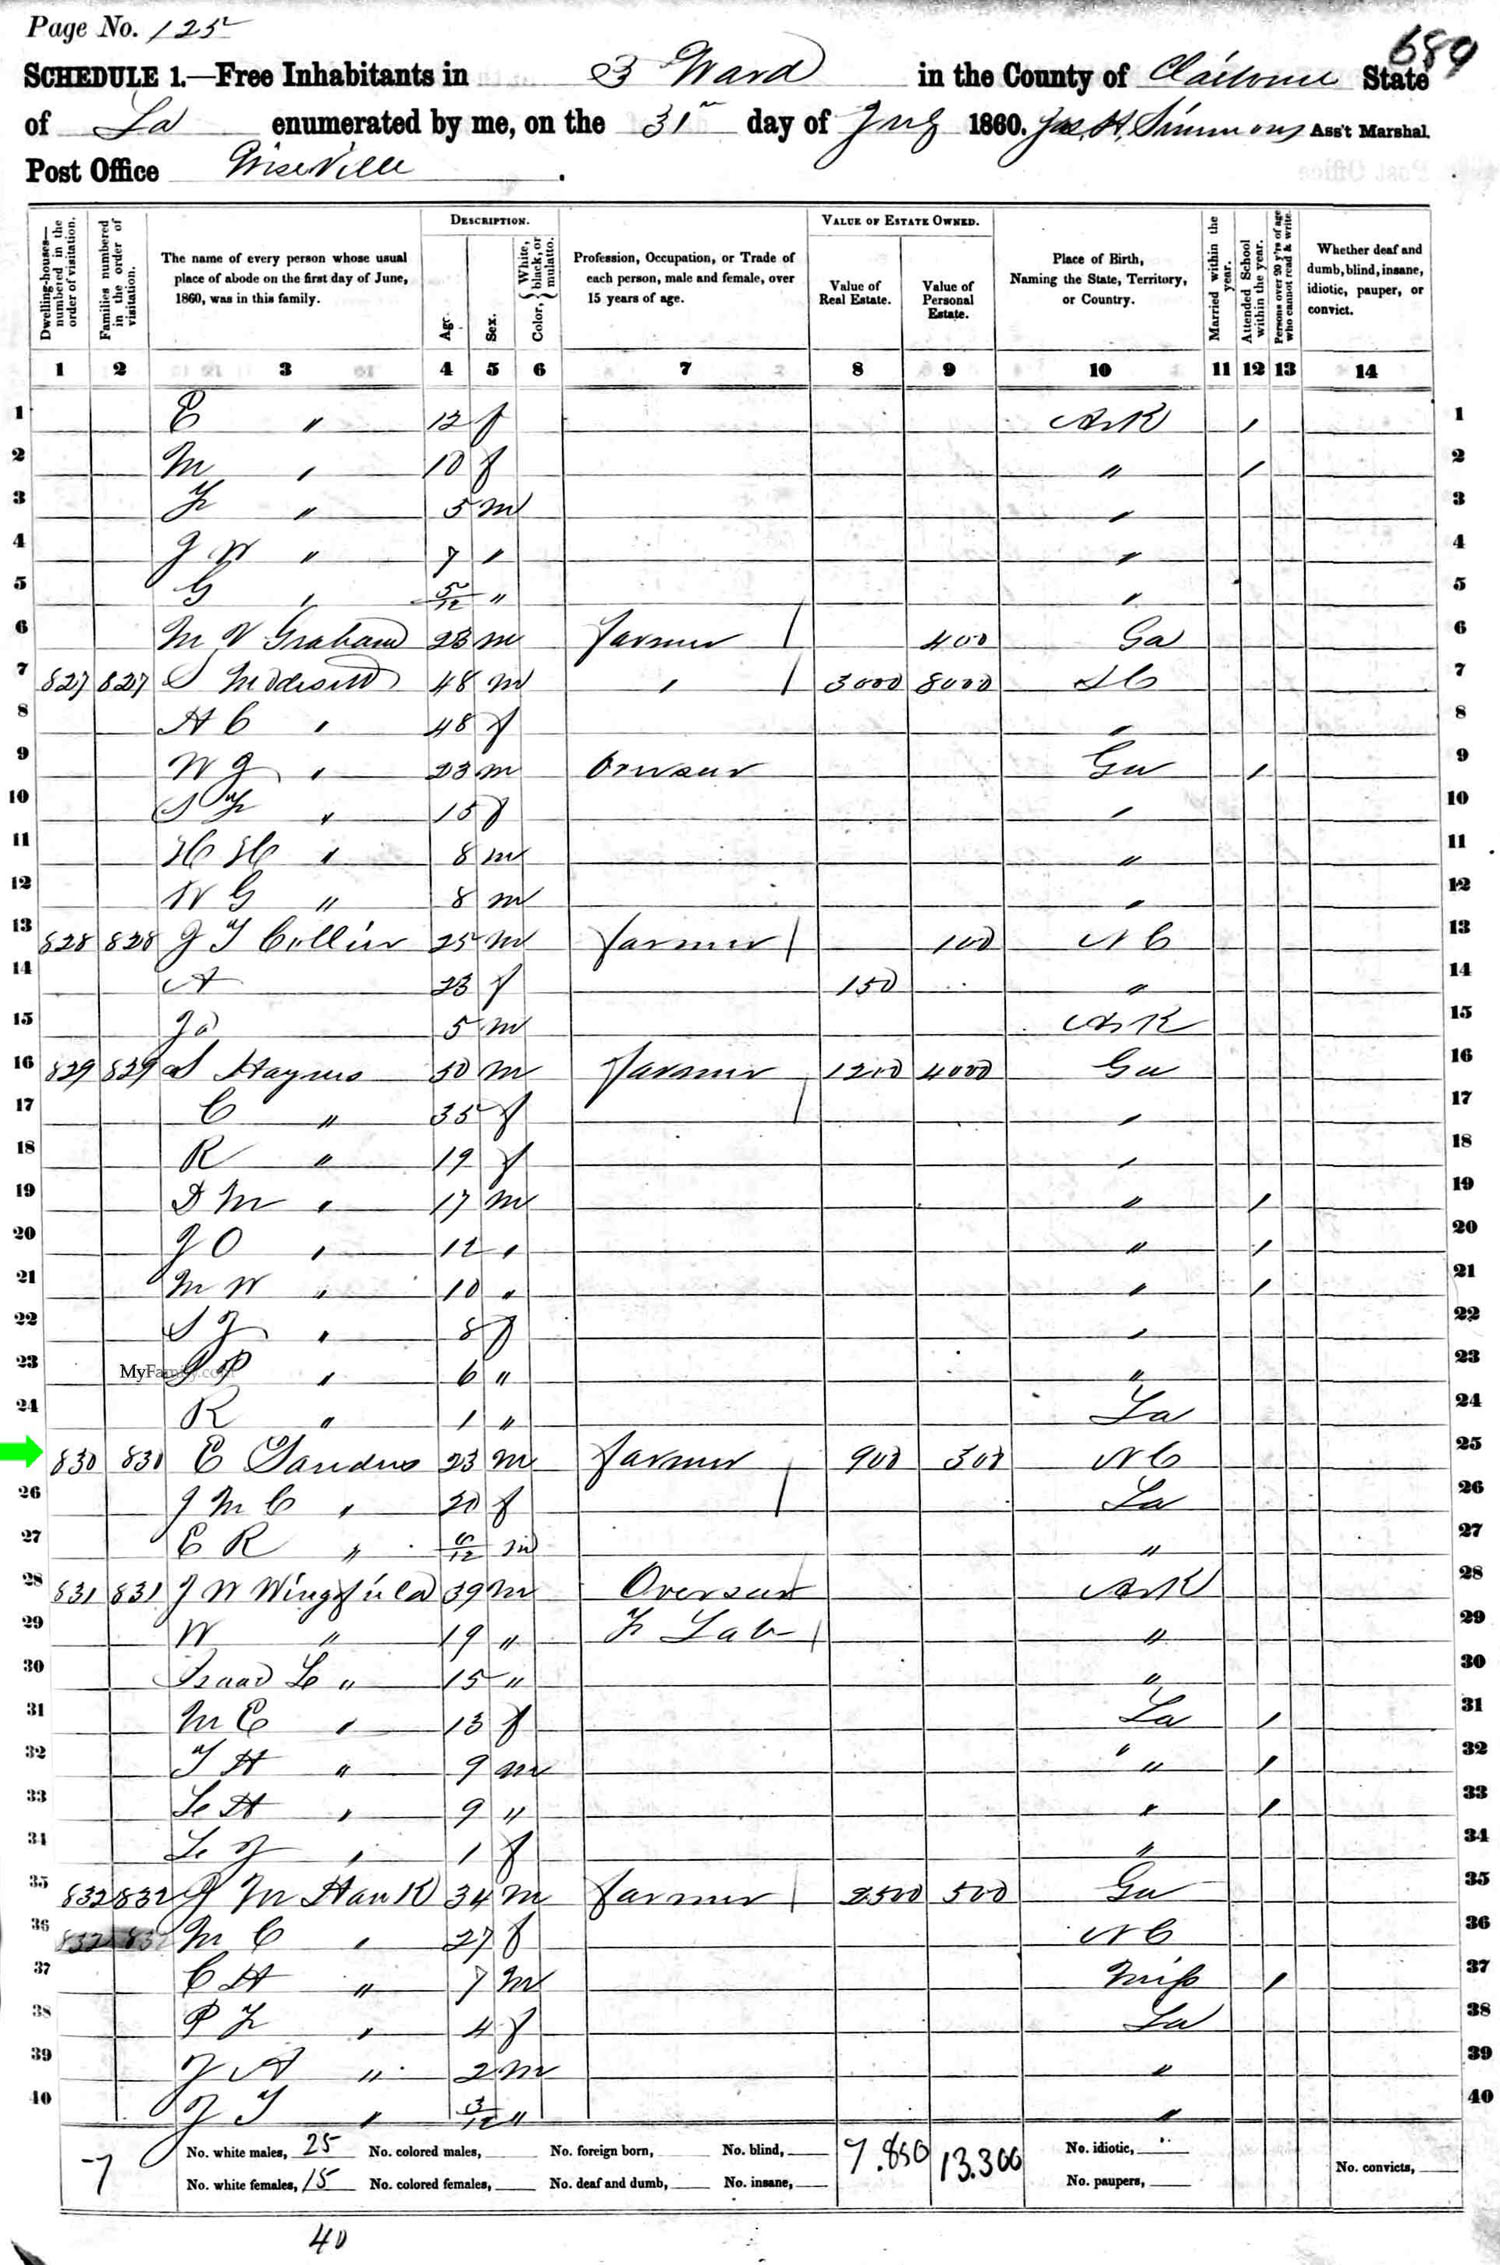 Page No. 125
689
SCHEDULE 1.—Free Inhabitants in 3 Ward in the County of Claiborne State
of La enumerated by me, on the 31st day of July 1860. Jas. H. Simmons Ass't Marshal.
Post Office
Dwelling-houses—numbered in the order of visitation.
Families numbered in the order of visitation.
The name of every person whose usual place of abode on the first day of June, 1860, was in this family.
DESCRIPTION.
Age.
Sex.
Color, { White, black, or mulatto.
Profession, Occupation, or Trade of each person, male and female, over 15 years of age.
VALUE OF ESTATE OWNED.
Value of Real Estate.
Value of Personal Estate.
Place of Birth, Naming the State, Territory, or Country.
Married within the year.
Attended School within the year.
Persons over 20 y'rs of age who cannot read & write.
Whether deaf and dumb, blind, insane, idiotic, pauper, or convict.
1 2 3 4 5 6 7 8 9 10 11 12 13 14
1 E " 12 f Ark / 1
2 M " 10 f " / 2
3 " 5 m " 3
4 J W " 7 " " 4
5 G " 5/12 " " 5
6 M V Graham 23 m farmer / 400 Ga 6
7 827 827 S 48 m " / 3000 8000 SC 7
8 H C " 48 f " 8
9 W J " 23 m Overseer Ga / 9
10 S " 15 f " 10
11 " 8 m " 11
12 W G " 8 m " 12
13 828 828 J T Collier 25 m farmer / 100 NC 13
14 A 23 f 150 " 14
15 5 m Ark 15
16 829 829 S Haynes 50 m farmer 1200 4000 Ga 16
17 C " 35 f / " 17
18 R " 19 f " 18
19 D M " 17 m " / 19
20 J O " 12 " " / 20
21 M W " 10 " " / 21
22 S J " 8 f " 22
23 MyFamily.com S P " 6 " " 23
24 R " 1 " La 24
25 830 830 E Sanders 23 m farmer 900 300 NC 25
26 J M C " 20 f / La 26
27 E R " /12 m " 27
28 831 831 J W Wingfield 39 m Overseer Ark 28
29 W " 19 " F Lab / " 29
30 Isaac L " 15 " " 30
31 M E " 13 f La / 31
32 T H " 9 m " " / 32
33 L H " 9 " " / 33
34 L J " 1 f " 34
35 832 832 J M Hank 34 m farmer / 2500 500 Ga 35
36 832 832 M C " 27 f NC 36
37 C H " 7 m Miss / 37
38 P " 4 f La 38
39 J A " 2 m " 39
40 J T " 3/12 " " 40
7 No. white males, 25 No. colored males, No. foreign born, No. blind, 7.850 13.300 No. idiotic,
No. white females, 15 No. colored females, No. deaf and dumb, No. insane, No. paupers, No. convicts,
40